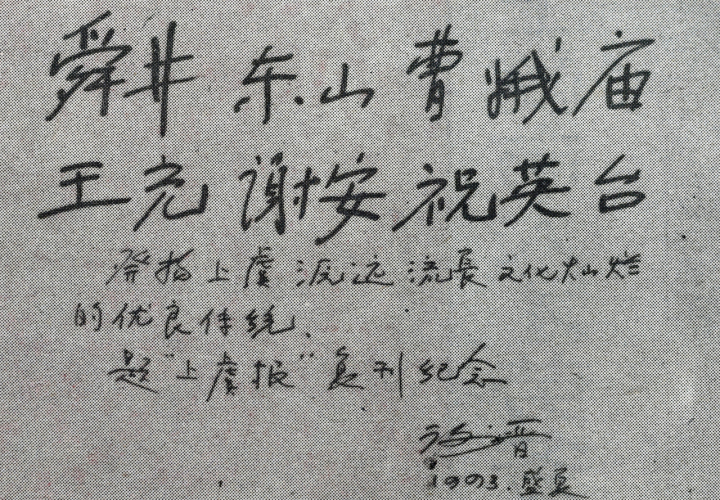 舜井 东山 曹娥庙
王充 谢安 祝英台
发扬上虞源远流長文化灿烂
的优良传统、
题“上虞报”复刊纪念
晋
1993.盛夏